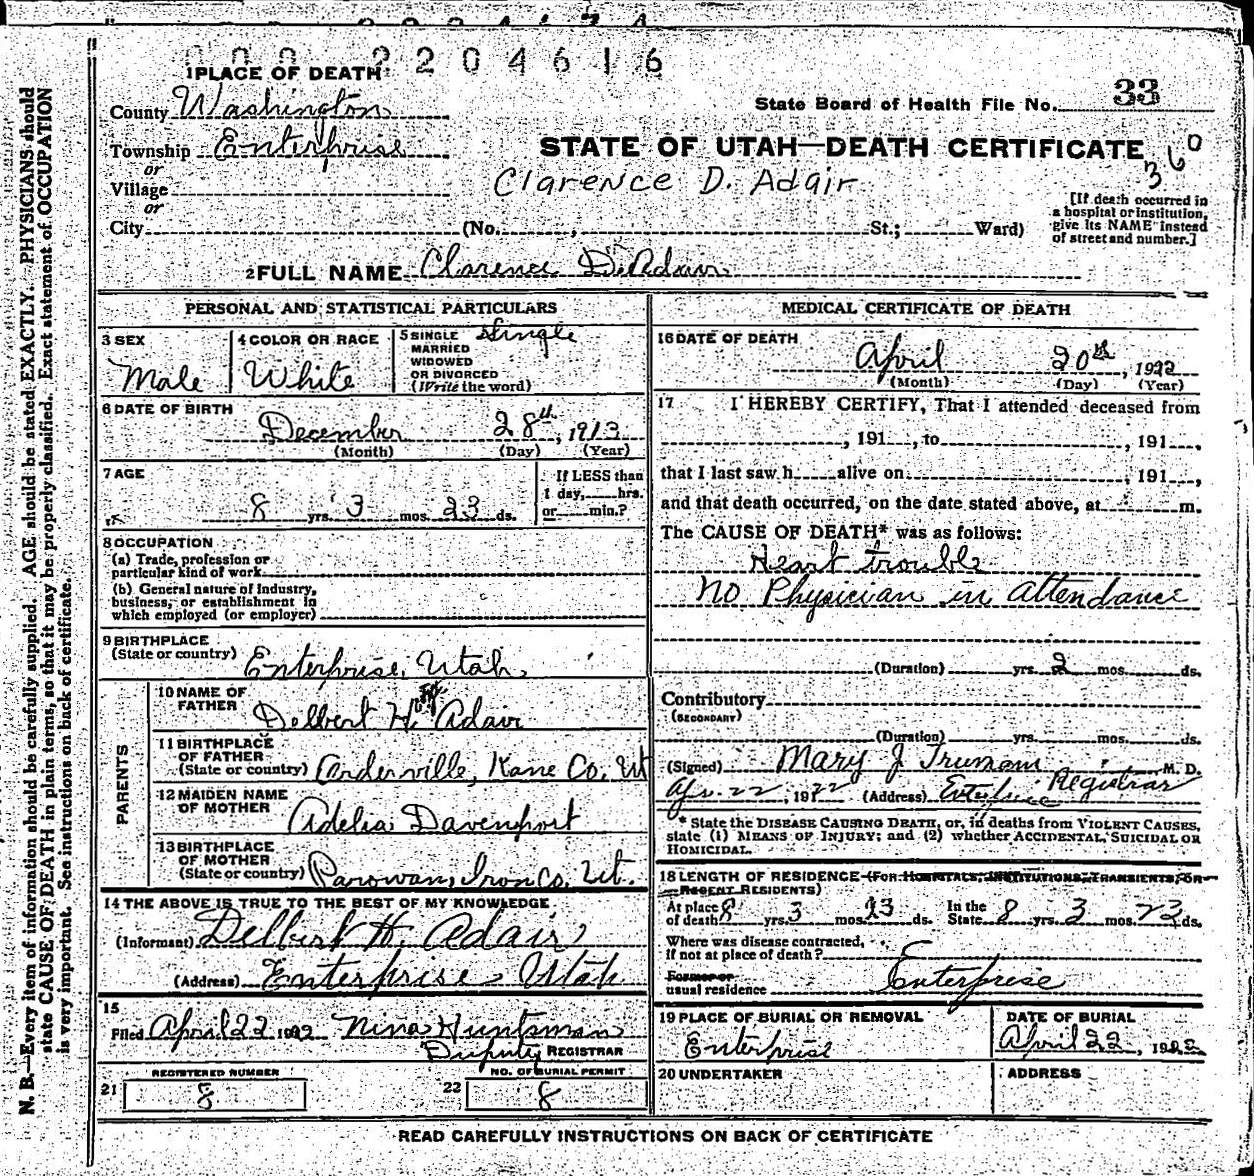 0 0 2 2 0 4 6 1 6
1 PLACE OF DEATH
County Washington
State Board of Health File No. 33
Township Enterprise
STATE OF UTAH—DEATH CERTIFICATE
360
or
Village
Clarence D. Adair
or
City (No. , St.; Ward)
[If death occurred in a hospital or institution, give its NAME instead of street and number.]
2 FULL NAME Clarence D. Adair
PERSONAL AND STATISTICAL PARTICULARS
3 SEX Male
4 COLOR OR RACE White
5 SINGLE MARRIED WIDOWED OR DIVORCED (Write the word) Single
6 DATE OF BIRTH
December 28th, 1913
(Month) (Day) (Year)
7 AGE
8 yrs. 3 mos. 23 ds.
If LESS than 1 day, hrs. or min.?
8 OCCUPATION
(a) Trade, profession or
particular kind of work
(b) General nature of industry,
business, or establishment in
which employed (or employer)
9 BIRTHPLACE
(State or country) Enterprise, Utah.
PARENTS
10 NAME OF FATHER Delbert H. Adair
11 BIRTHPLACE OF FATHER (State or country) Orderville, Kane Co. Ut
12 MAIDEN NAME OF MOTHER Adelia Davenport
13 BIRTHPLACE OF MOTHER (State or country) Parowan, Iron Co. Ut.
14 THE ABOVE IS TRUE TO THE BEST OF MY KNOWLEDGE
(Informant) Delbert H. Adair
(Address) Enterprise Utah
15
Filed April 22 1922 Nina Huntsman
Deputy REGISTRAR
21 REGISTERED NUMBER 8
22 NO. OF BURIAL PERMIT 8
MEDICAL CERTIFICATE OF DEATH
16 DATE OF DEATH
April 20th, 1922
(Month) (Day) (Year)
17 I HEREBY CERTIFY, That I attended deceased from
, 191 , to , 191 ,
that I last saw h alive on , 191 ,
and that death occurred, on the date stated above, at m.
The CAUSE OF DEATH* was as follows:
Heart trouble
No Physician in attendance
(Duration) yrs. 2 mos. ds.
Contributory
(SECONDARY)
(Duration) yrs. mos. ds.
(Signed) Mary J Truman M. D.
Apr. 22, 1922 (Address) Enterprise Registrar
* State the DISEASE CAUSING DEATH, or, in deaths from VIOLENT CAUSES,
state (1) MEANS OF INJURY; and (2) whether ACCIDENTAL, SUICIDAL OR
HOMICIDAL.
18 LENGTH OF RESIDENCE (FOR HOSPITALS, INSTITUTIONS, TRANSIENTS, OR
RECENT RESIDENTS)
At place of death 8 yrs. 3 mos. 23 ds. In the State 8 yrs. 3 mos. 23 ds.
Where was disease contracted,
if not at place of death?
Former or
usual residence Enterprise
19 PLACE OF BURIAL OR REMOVAL
Enterprise
DATE OF BURIAL
April 22, 1922
20 UNDERTAKER
ADDRESS
READ CAREFULLY INSTRUCTIONS ON BACK OF CERTIFICATE
N. B.—Every item of information should be carefully supplied. AGE should be stated EXACTLY. PHYSICIANS should
state CAUSE OF DEATH in plain terms, so that it may be properly classified. Exact statement of OCCUPATION
is very important. See instructions on back of certificate.